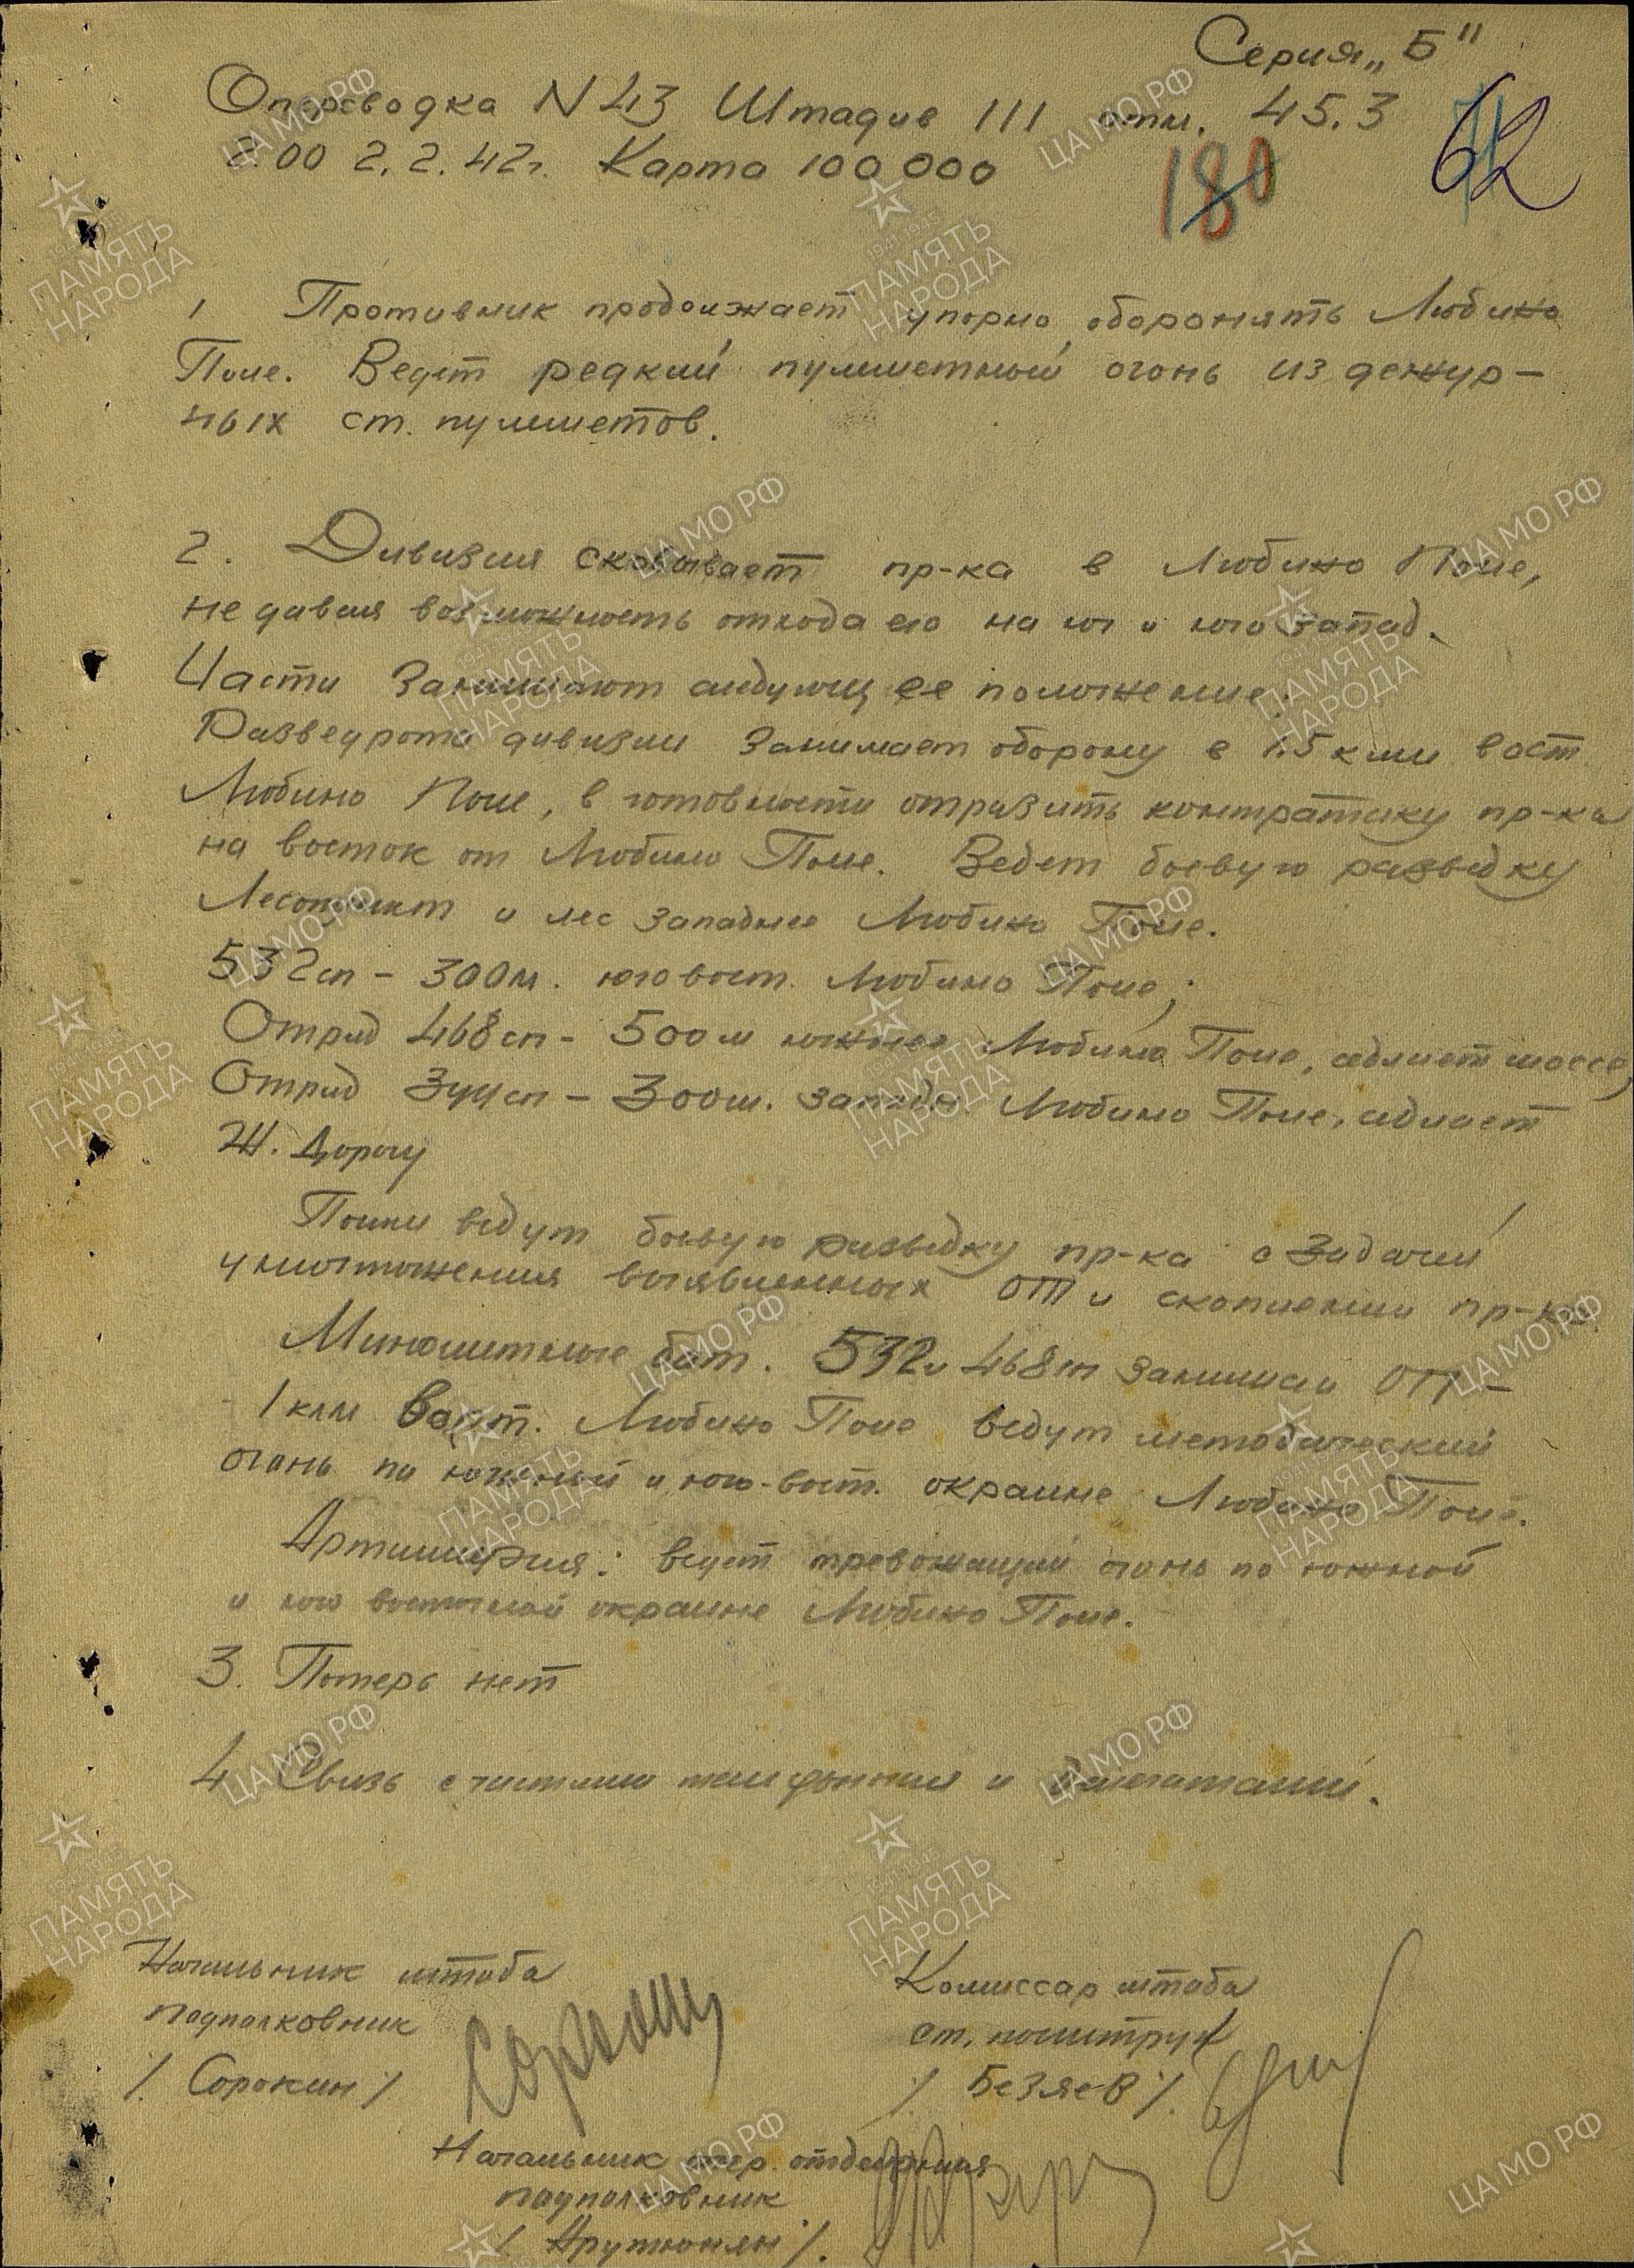 Серия „Б"
Оперсводка N 43 Штадив 111 отм. 45.3
2.00 2.2.42г. Карта 100 000
180
62
1 Противник продолжает упорно оборонять Любино
Поле. Ведет редкий пулеметный огонь из дежур-
ных ст. пулеметов.
2. Дивизия сковывает пр-ка в Любино Поле,
не давая возможность отхода его на юг и юго запад.
Части занимают следующее положение:
Разведрота дивизии занимает оборону в 1.5 клм вост
Любино Поле, в готовности отразить контратаку пр-ка
на восток от Любино Поле. Ведет боевую разведку
Лесопункт и лес западнее Любино Поле.
532сп – 300м. юговост. Любино Поле;
Отряд 468сп – 500м южнее Любино Поле, седлает шоссе,
Отряд 344сп – 300м. западн. Любино Поле, седлает
Ж. Дорогу
Полки ведут боевую разведку пр-ка с задачей
уничтожения выявленных ОТ и скоплений пр-ка.
Минометные бат. 532 и 468сп занимали ОП –
- 1 клм Вост. Любино Поле ведут методический
огонь по южной и юго-вост. окраине Любино Поле.
Артиллерия: ведет тревожащий огонь по южной
и юго восточной окраине Любино Поле.
3. Потерь нет
4 Связь с частями телефонная и делегатами.
Начальник штаба
подполковник
/. Сорокин /
Комиссар штаба
ст. политрук
/ Безяев /.
Начальник опер. отделения
подполковник
/ Арутюнян /.
ЦА МО РФ
1941-1945
ПАМЯТЬ
НАРОДА